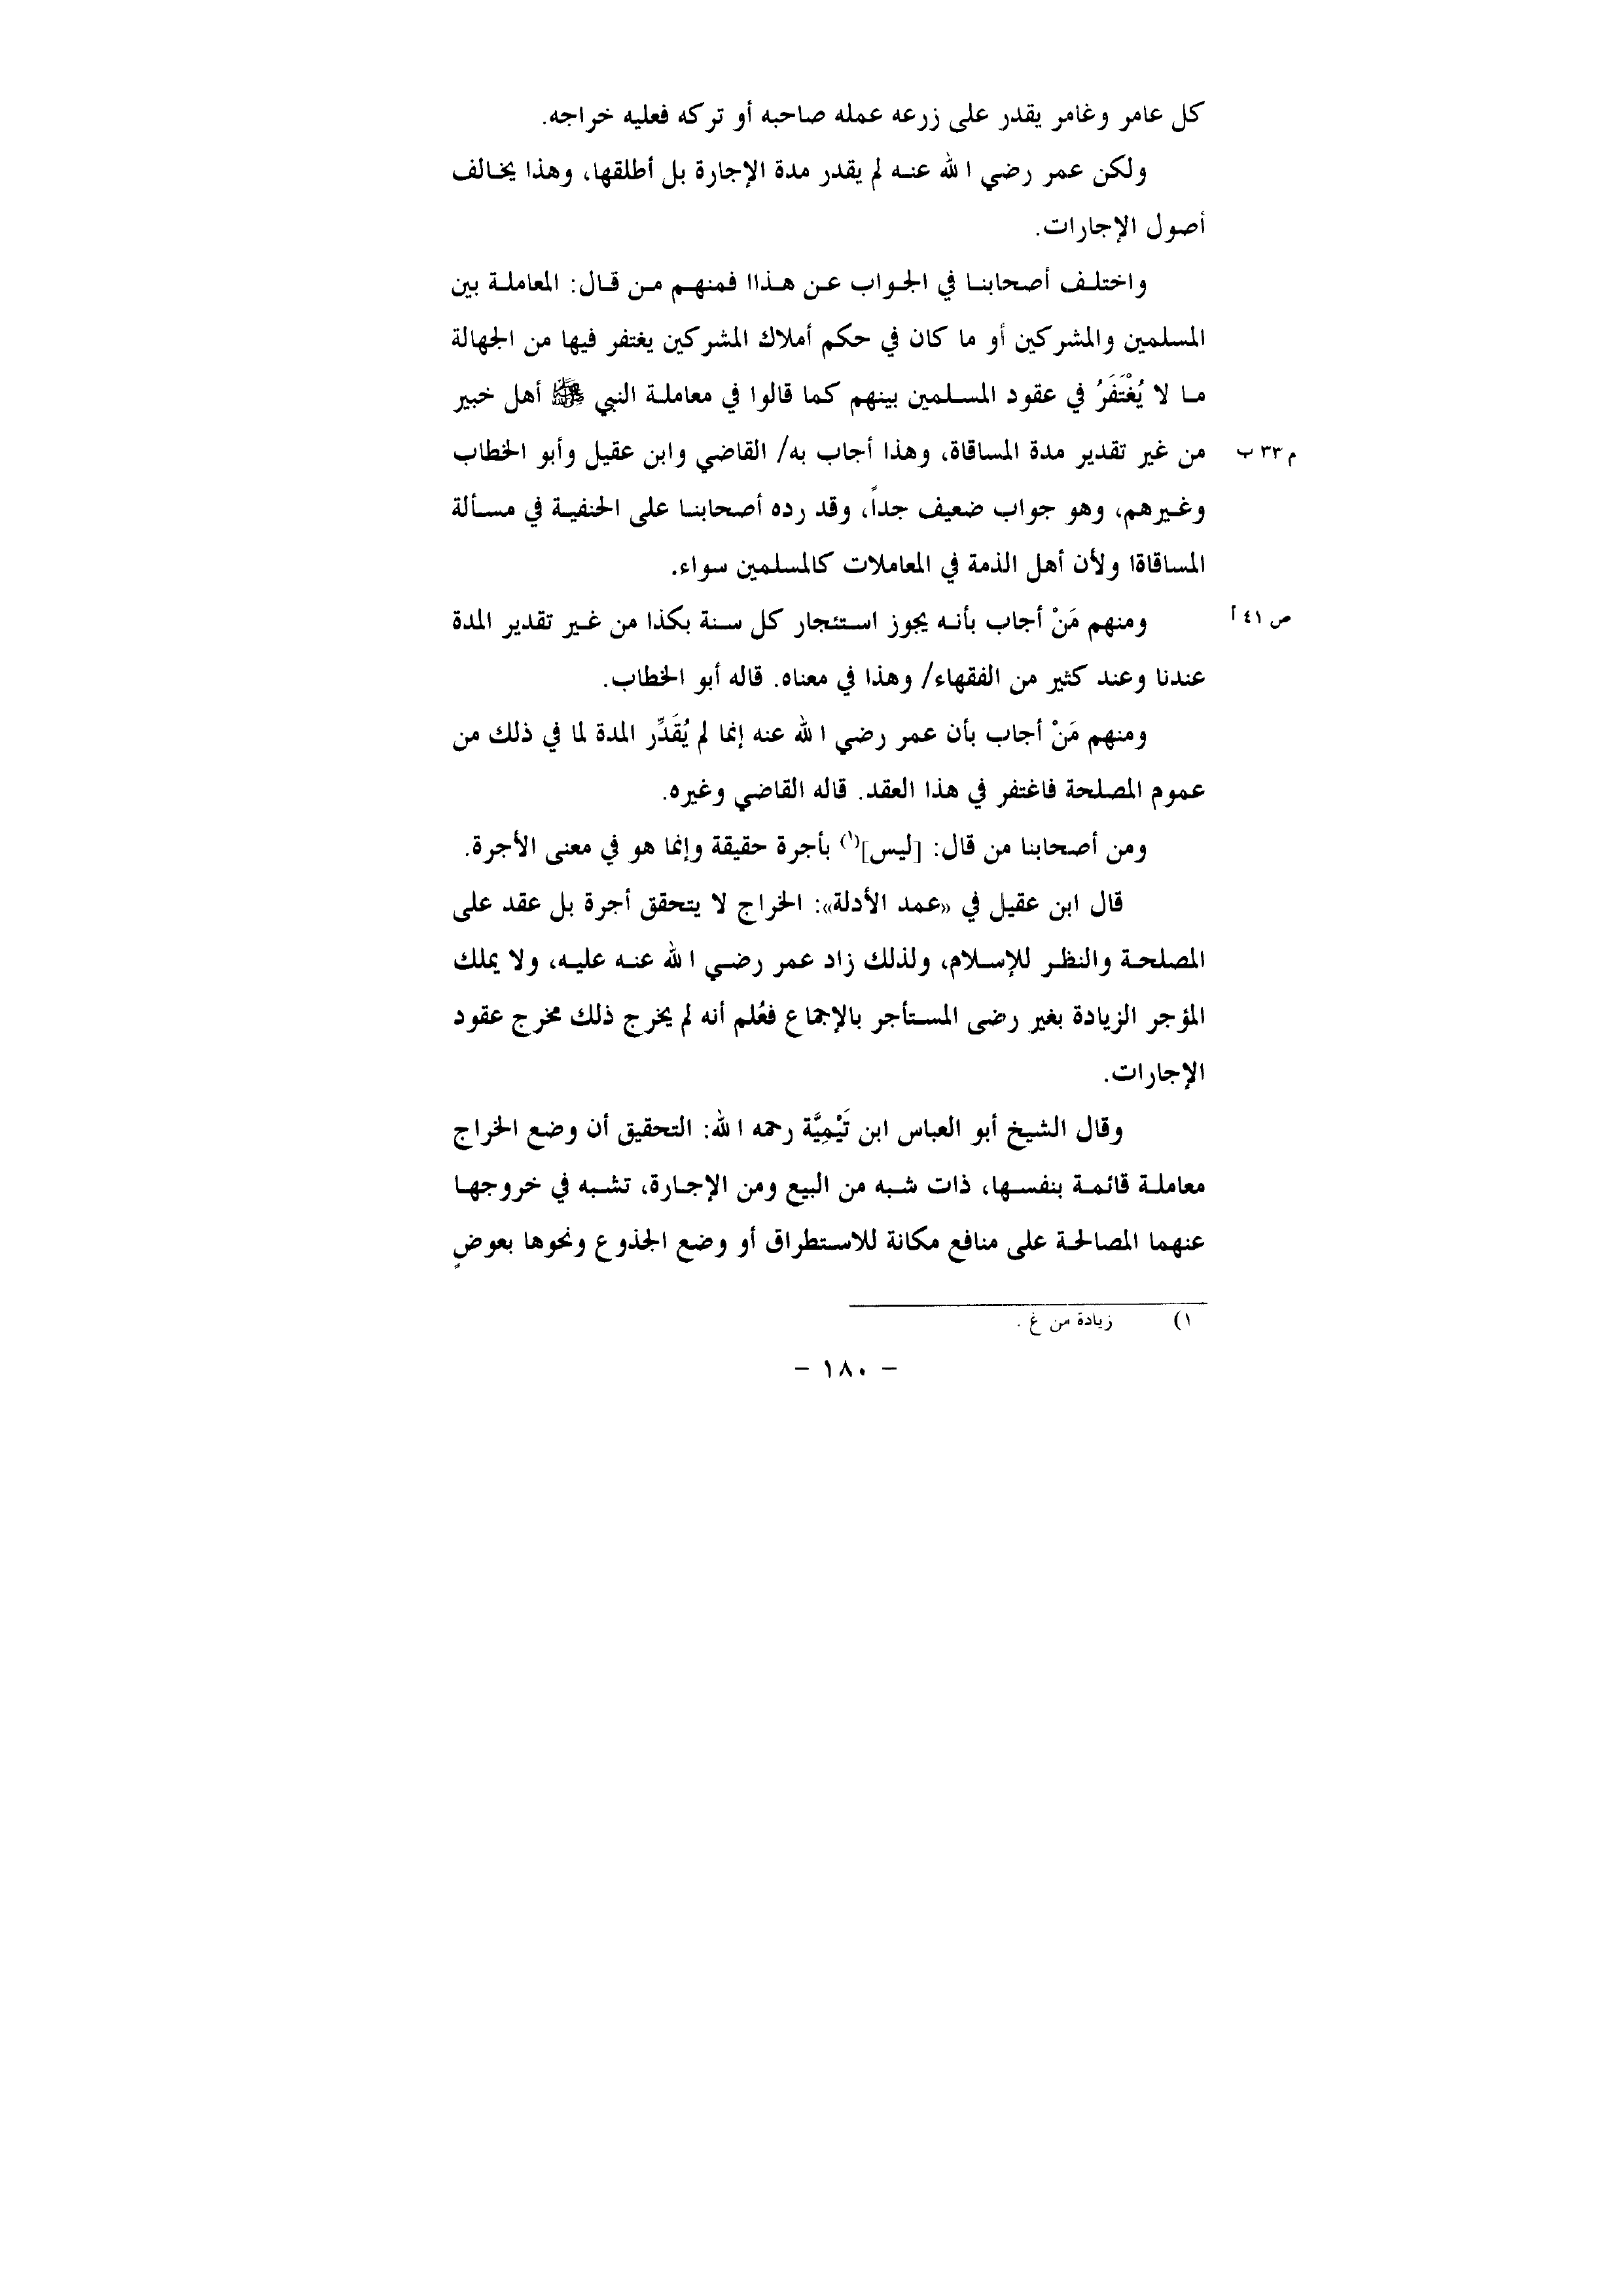 كل عامر وغامر يقدر على زرعه عمله صاحبه أو تركه فعليه خراجه.
ولكن عمر رضي الله عنه لم يقدر مدة الإجارة بل أطلقها، وهذا يخالف
أصول الإجارات.
واختلف أصحابنا في الجواب عن هذاا فمنهم من قال: المعاملة بين
المسلمين والمشركين أو ما كان في حكم أملاك المشركين يغتفر فيها من الجهالة
ما لا يُغْتَفَرُ في عقود المسلمين بينهم كما قالوا في معاملة النبي ﷺ أهل خيبر
من غير تقدير مدة المساقاة، وهذا أجاب به/ القاضي وابن عقيل وأبو الخطاب
م ٣٣ ب
وغيرهم، وهو جواب ضعيف جداً، وقد رده أصحابنا على الحنفية في مسألة
المساقاةا ولأن أهل الذمة في المعاملات كالمسلمين سواء.
ومنهم مَنْ أجاب بأنه يجوز استئجار كل سنة بكذا من غير تقدير المدة
ص ٤١ أ
عندنا وعند كثير من الفقهاء/ وهذا في معناه. قاله أبو الخطاب.
ومنهم مَنْ أجاب بأن عمر رضي الله عنه إنما لم يُقَدِّر المدة لما في ذلك من
عموم المصلحة فاغتفر في هذا العقد. قاله القاضي وغيره.
ومن أصحابنا من قال: [ليس](١) بأجرة حقيقة وإنما هو في معنى الأجرة.
قال ابن عقيل في «عمد الأدلة»: الخراج لا يتحقق أجرة بل عقد على
المصلحة والنظر للإسلام، ولذلك زاد عمر رضي الله عنه عليه، ولا يملك
المؤجر الزيادة بغير رضى المستأجر بالإجماع فعُلم أنه لم يخرج ذلك مخرج عقود
الإجارات.
وقال الشيخ أبو العباس ابن تَيْمِيَّة رحمه الله: التحقيق أن وضع الخراج
معاملة قائمة بنفسها، ذات شبه من البيع ومن الإجارة، تشبه في خروجها
عنهما المصالحة على منافع مكانة للاستطراق أو وضع الجذوع ونحوها بعوضٍ
١) زيادة من غ .
- ١٨٠ -